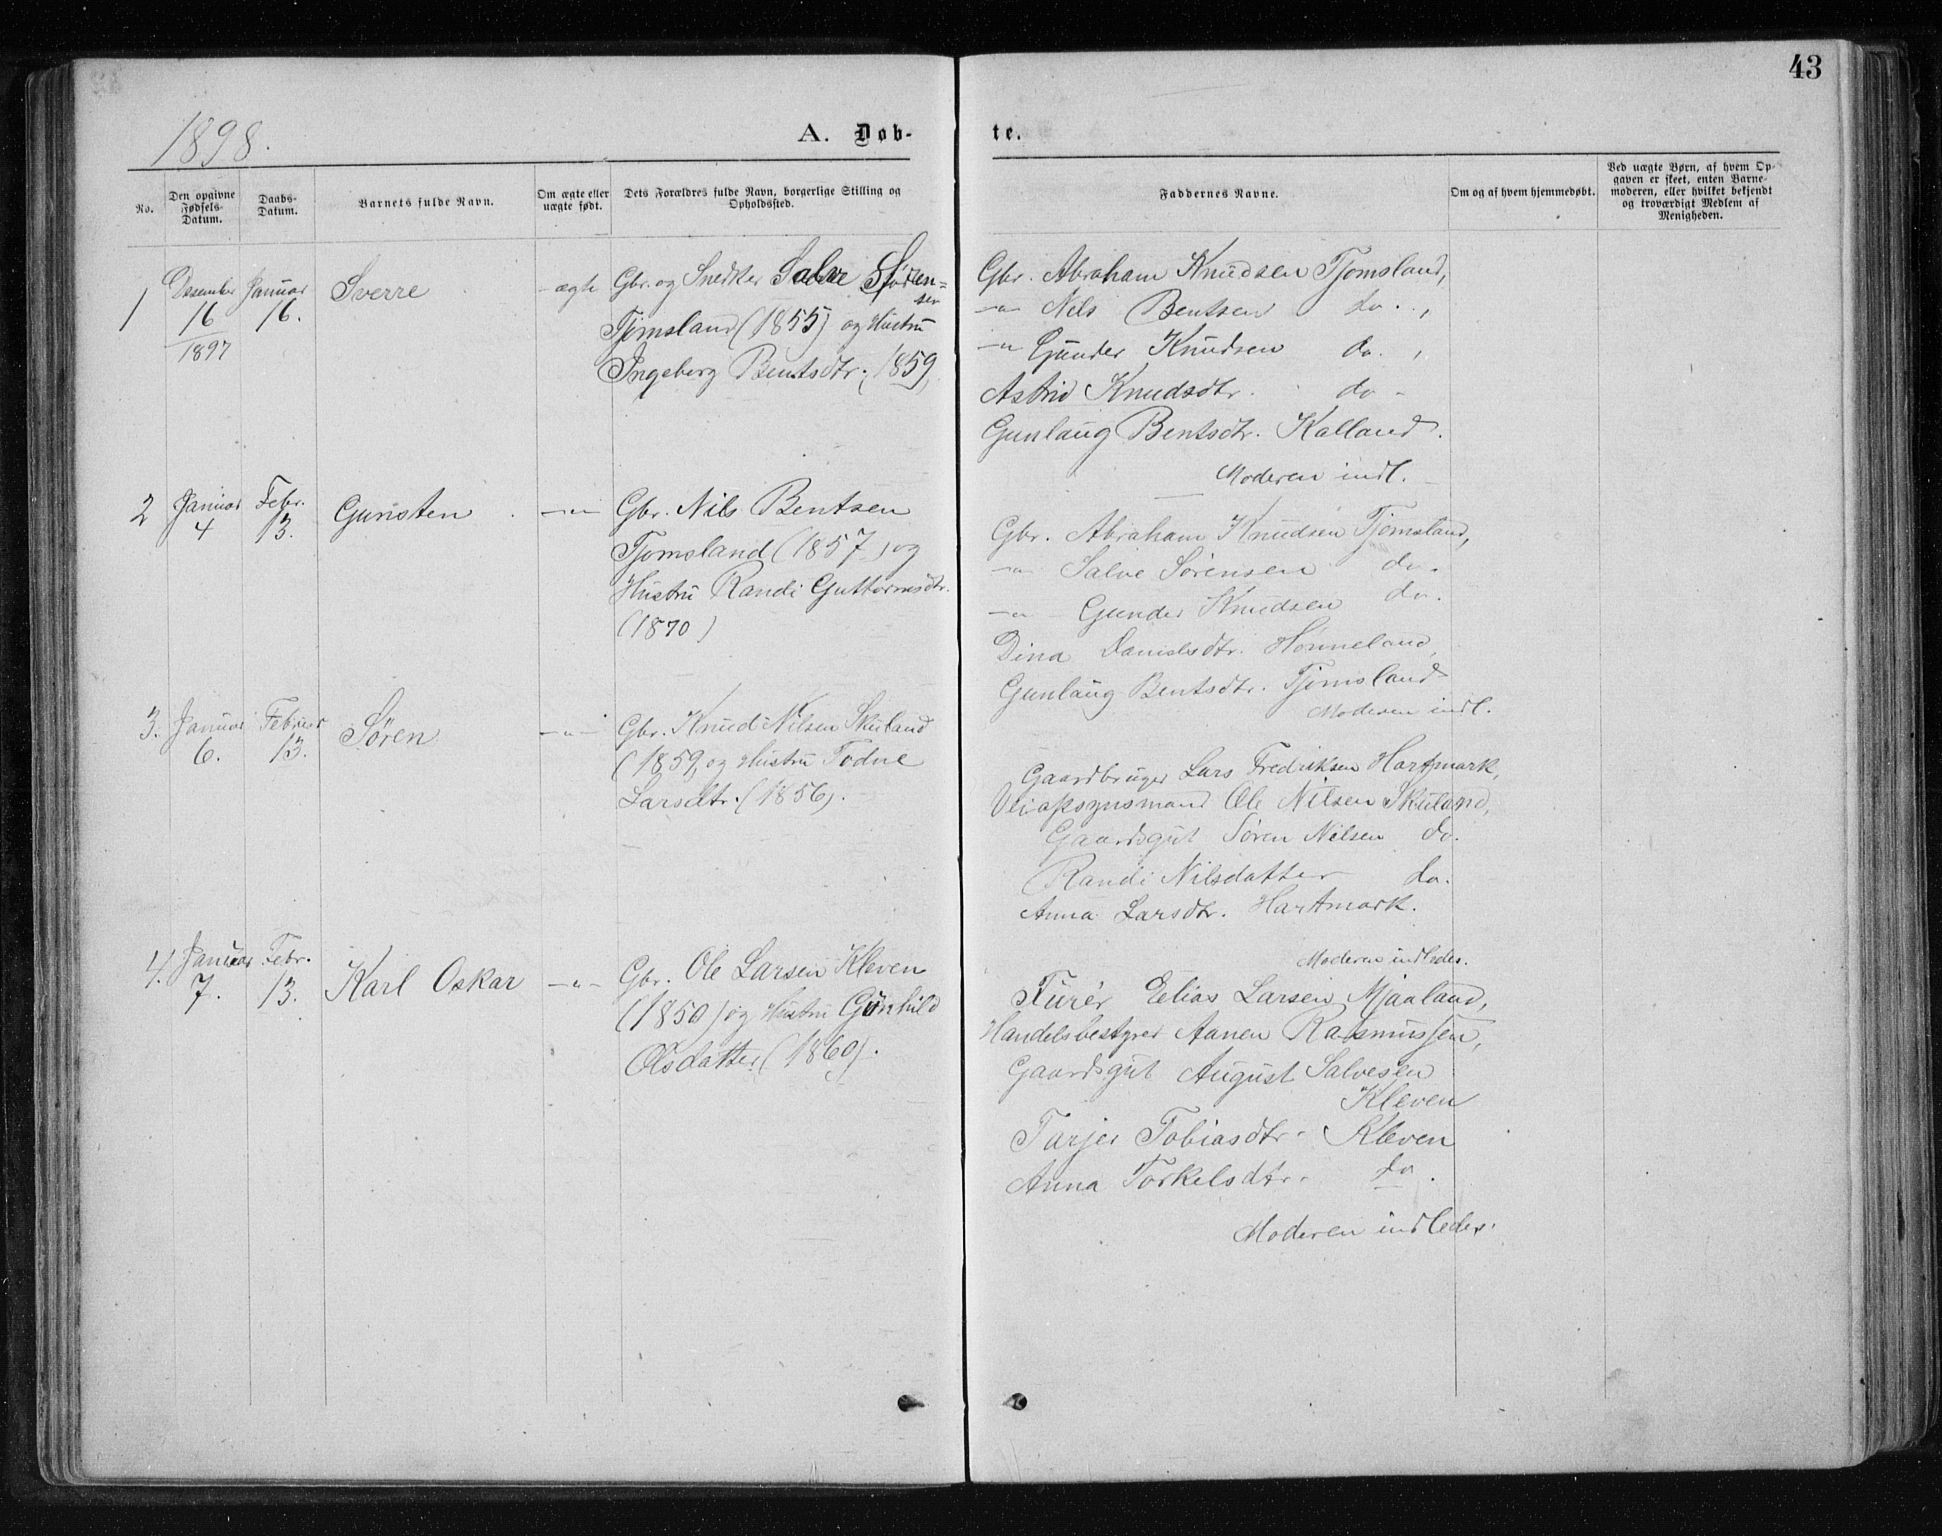 43
1898.
A. Døb-
te.
No.
Den opgivne
Fødsels-
Datum.
Daabs-
Datum.
Barnets fulde Navn.
Om ægte eller
uægte født.
Dets Forældres fulde Navn, borgerlige Stilling og
Opholdssted.
Faddernes Navne.
Om og af hvem hjemmedøbt.
Ved uægte Børn, af hvem Op-
gaven er skeet, enten Barne-
moderen, eller hvilket bekjendt
og troværdigt Medlem af
Menigheden.
1
Desember
16
1897
Januar
16.
Sverre
ægte
Gbr. og Snedker Salve Søren=
sen
Tjomsland (1855) og Hustru
Ingeborg Bentsdtr. (1859)
Gbr. Abraham Knudsen Tjomsland,
-"- Nils Bentsen do.,
-"- Gunder Knudsen do.,
Astrid Knudsdtr. do -
Gunlaug Bentsdtr. Kalland.
Moderen indl.
2
Januar
4
Febr.
13.
Guristen
-"-
Gbr. Nils Bentsen
Tjomsland (1857) og
Hustru Randi Guttormsdtr.
(1870)
Gbr. Abraham Knudsen Tjomsland,
-"- Salve Sørensen do.
-"- Gunder Knudsen do.
Dina Danielsdtr. Honneland,
Gunlaug Bentsdtr. Tjomsland
Moderen indl.
3.
Januar
6.
Februar
13.
Søren
-"-
Gbr. Knud Nilsen Skuland
(1859) og Hustru Todne
Larsdtr. (1856).
Gaardbruger Lars Fredriksen Hartmark,
Veiopsynsmand Ole Nilsen Skuland,
Gaardsgut Søren Nilsen do.
Randi Nilsdatter do.
Anna Larsdtr. Hartmark.
Moderen indledes.
4.
Januar
7.
Febr.
13.
Karl Oskar
-"-
Gbr. Ole Larsen Kleven
(1850) og Hustru Gunhild
Olsdatter (1860).
Furér Elias Larsen Mjaaland,
Handelsbestyrer Aanen Rasmussen,
Gaardsgut August Salvesen
Kleven
Tarjer Tobiasdtr. Kleven
Anna Torkelsdtr. do.
Moderen indledes.